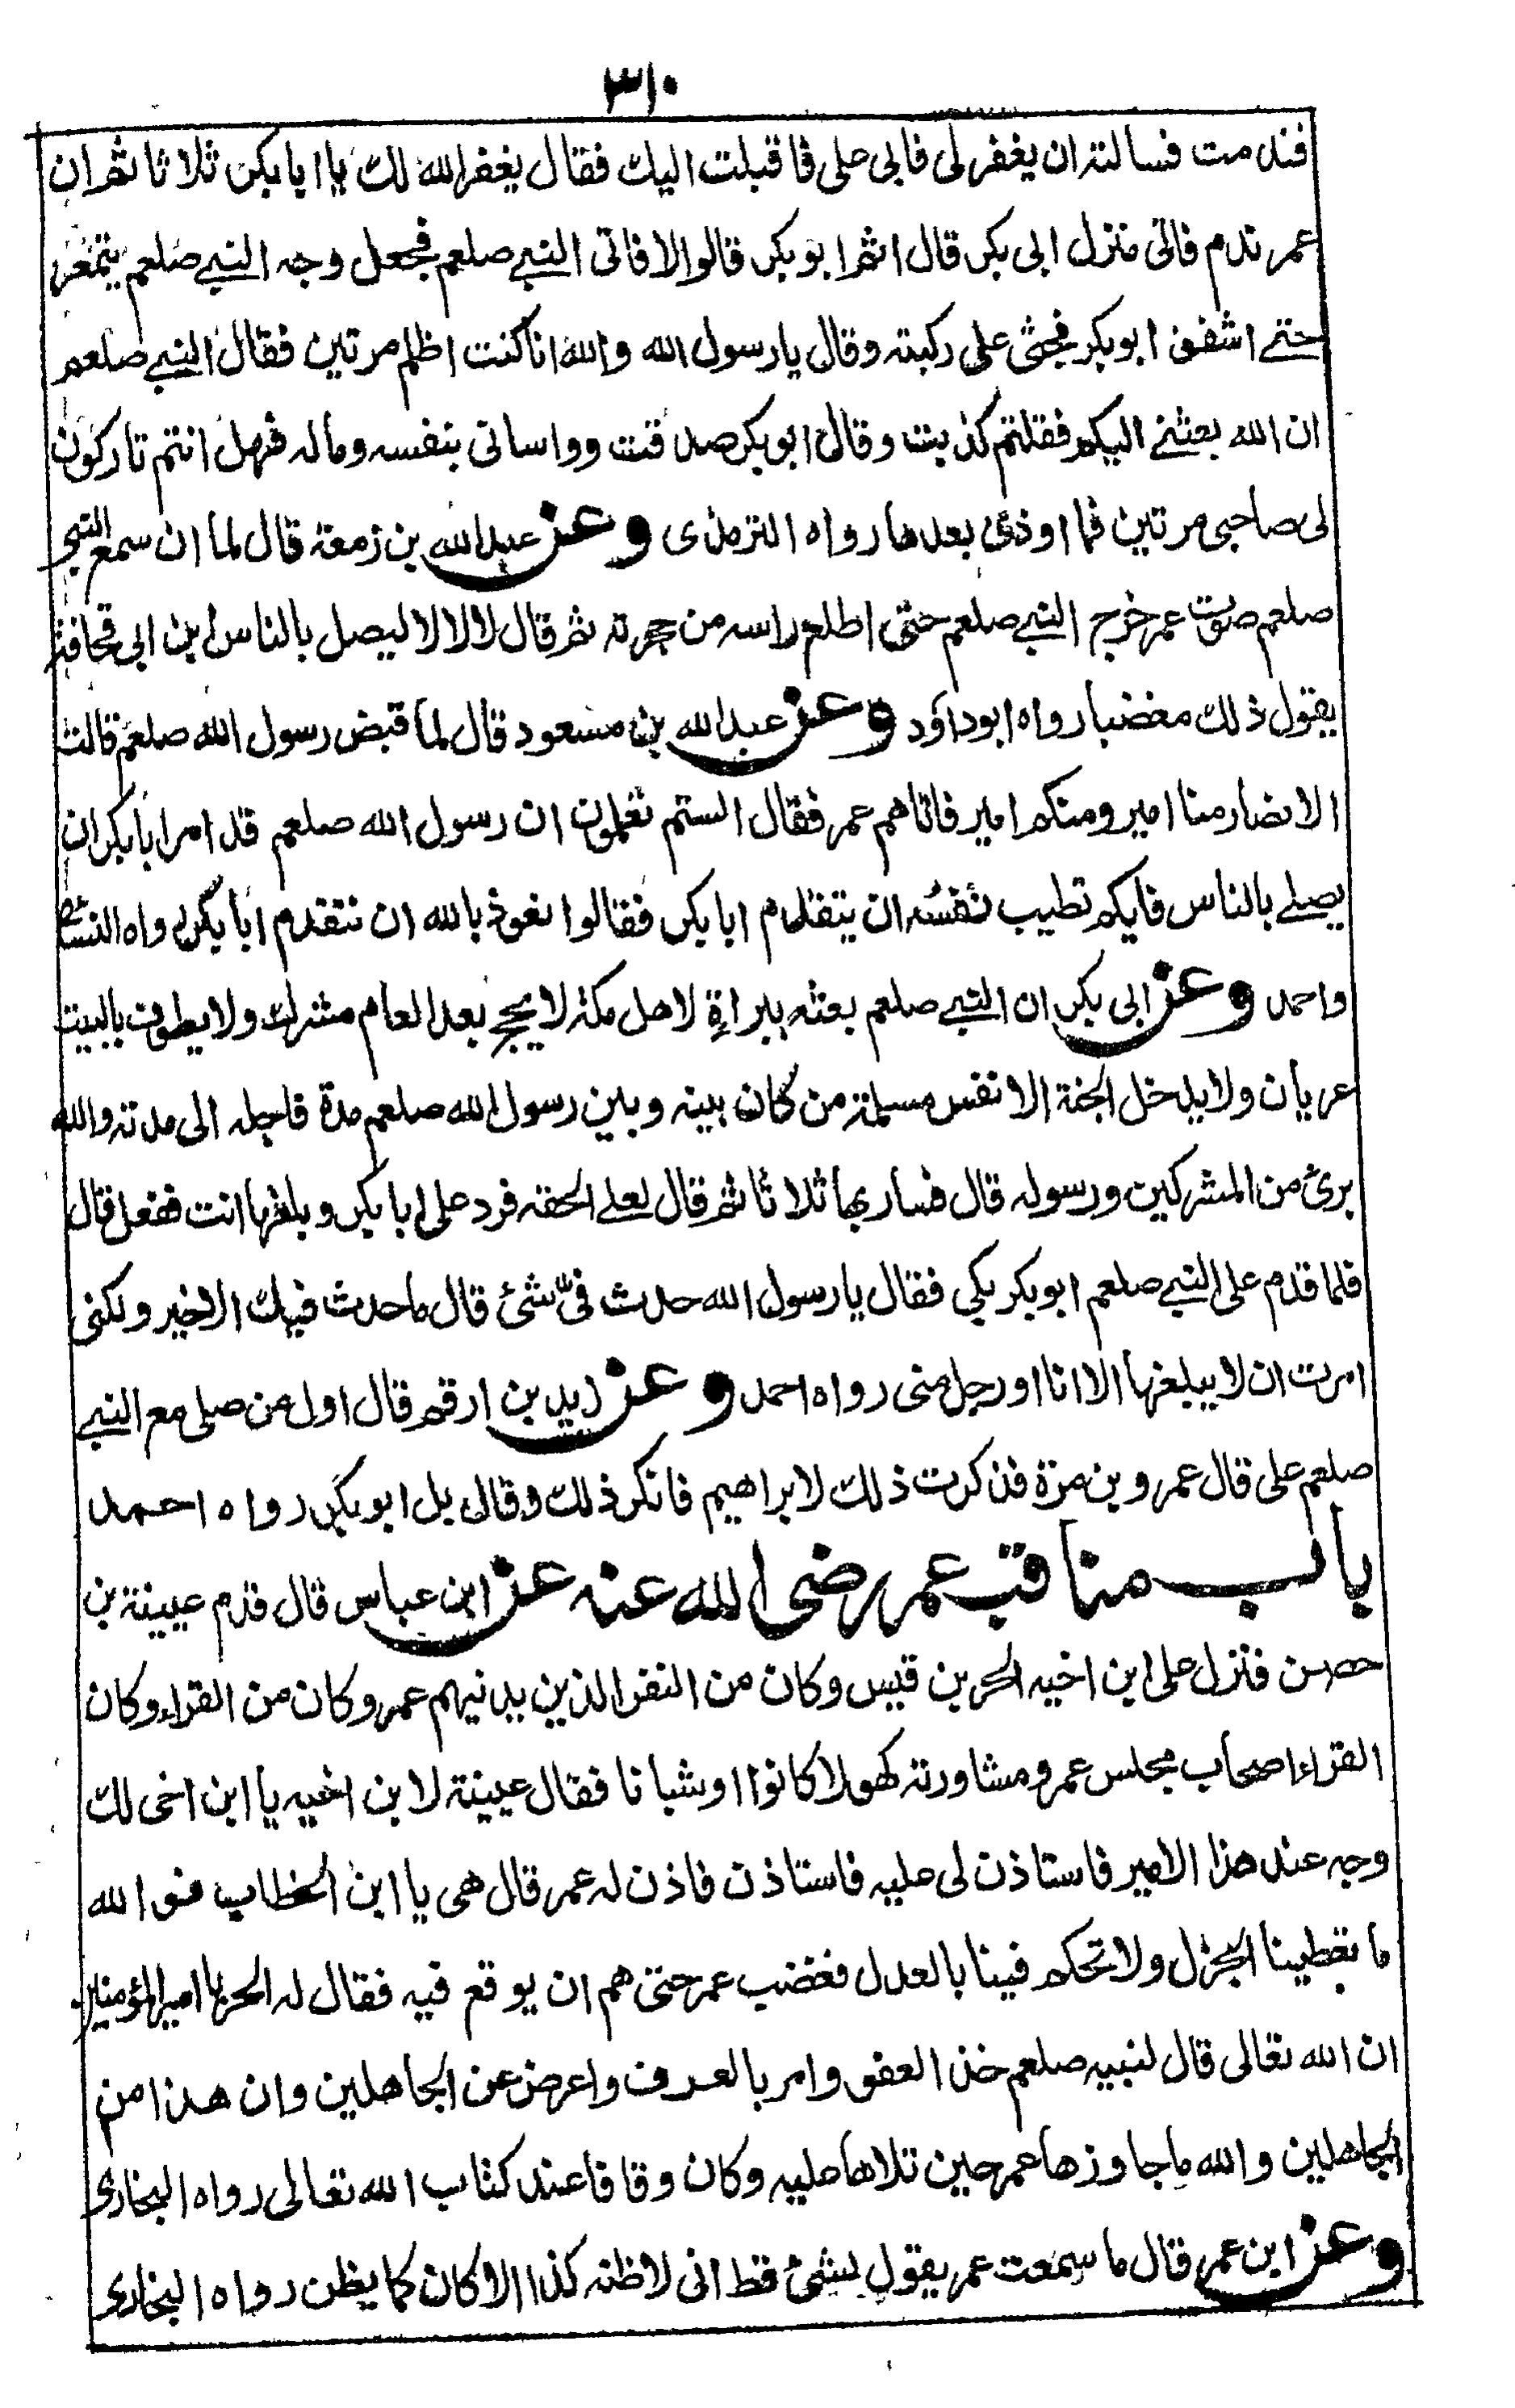 ٣١٠
فندمت فسالته ان يغفر لى فابى على فاقبلت اليك فقال يغفر الله لك يا ابا بكر ثلاثا ثم ان
عمر ندم فاتى منزل ابى بكر قال اثم ابو بكر قالوا لا فاتى النبي صلعم فجعل وجه النبي صلعم يتمعر
حتے اشفق ابو بكر فجثى على ركبته وقال يا رسول الله والله انا كنت اظلم مرتين فقال النبي صلعم
ان الله بعثنے اليكم فقلتم كذبت وقال ابو بكر صدقت وواسانى بنفسه وماله فهل انتم تاركون
لى صاحبى مرتين فما اوذى بعدها رواه الترمذى وعن عبد الله بن زمعة قال لما ان سمع النبي
صلعم صوت عمر خرج النبي صلعم حتى اطلع راسه من حجرته ثم قال لا لا لا ليصل بالناس ابن ابى قحافة
يقول ذلك مغضبا رواه ابو داؤد وعن عبد الله بن مسعود قال لما قبض رسول الله صلعم قالت
الانصار منا امير ومنكم امير فاتاهم عمر فقال الستم تعلمون ان رسول الله صلعم قد امر ابا بكر ان
يصلے بالناس فايكم تطيب نفسُه ان يتقدم ابا بكر فقالوا نعوذ بالله ان نتقدم ابا بكر رواه النسائى
واحمد وعن ابى بكر ان النبي صلعم بعثه ببراءة لاهل مكة لا يحج بعد العام مشرك ولا يطوف بالبيت
عريان ولا يدخل الجنة الا نفس مسلمة من كان بينه وبين رسول الله صلعم مدة فاجله الى مدته والله
برئ من المشركين ورسوله قال فسار بها ثلاثا ثم قال لعلے الحقه فرد على ابا بكر وبلغها انت ففعل قال
فلما قدم على النبي صلعم ابو بكر بكى فقال يا رسول الله حدث فىّ شئ قال ما حدث فيك الا خير ولكنى
امرت ان لا يبلغها الا انا او رجل منى رواه احمد وعن زيد بن ارقم قال اول من صلى مع النبي
صلعم على قال عمرو بن مرة فذكرت ذلك لابراهيم فانكر ذلك وقال بل ابو بكر رواه احمد
باب مناقب عمر رضى الله عنه عن ابن عباس قال قدم عيينة بن
حصن فنزل على ابن اخيه الحر بن قيس وكان من النفر الذين يدنيهم عمر وكان من القراء وكان
القراء اصحاب مجلس عمر ومشاورته كهولا كانوا او شبانا فقال عيينة لابن اخيه يا ابن اخى لك
وجه عند هذا الامير فاستاذن لى عليه فاستاذن فاذن له عمر قال هى يا ابن الخطاب فو الله
ما تعطينا الجزل ولا تحكم فينا بالعدل فغضب عمر حتى هم ان يوقع فيه فقال له الحر يا امير المؤمنين
ان الله تعالى قال لنبيه صلعم خذ العفو وامر بالعرف واعرض عن الجاهلين وان هذا من
الجاهلين والله ما جاوزها عمر حين تلاها عليه وكان وقافا عند كتاب الله تعالى رواه البخارى
وعن ابن عمر قال ما سمعت عمر يقول لشئ قط انى لاظنه كذا الا كان كما يظن رواه البخارى